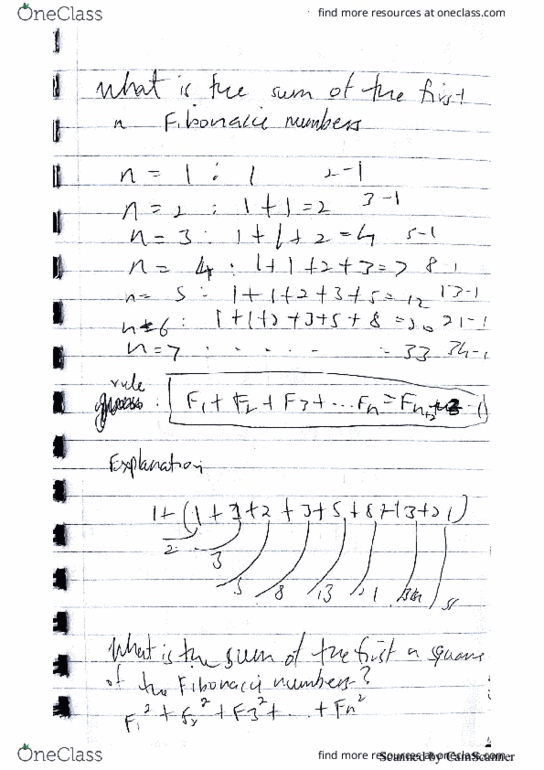 OneClass
find more resources at oneclass.com
What is the sum of the first
n Fibonaccie numbers
n = 1 : 1 2-1
n = 2 : 1+1=2 3-1
n = 3 : 1+1+2=4 5-1
n = 4 : 1+1+2+3=7 8-1
n = 5 : 1+1+2+3+5=12 13-1
n = 6 : 1+1+2+3+5+8=20 21-1
n = 7 : . . . . = 33 34-1
rule
guess : F1 + F2 + F3 + ... Fn = Fn+2 - 1
Explanation
1+(1+1+2+3+5+8+13+21)
2 3 5 8 13 21
What is the sum of the first n square
of the Fibonacci numbers?
F1² + F2² + F3² + ... + Fn²
OneClass
find more resources at oneclass.com
Scanned by CamScanner